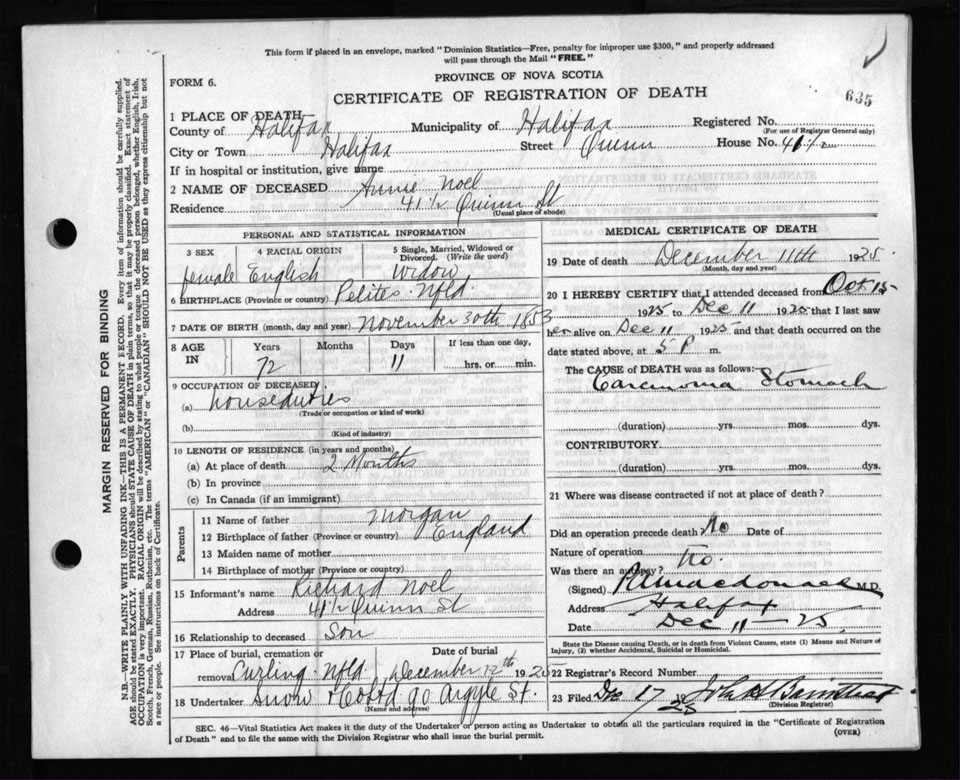 This form if placed in an envelope, marked "Dominion Statistics—Free, penalty for improper use $300," and properly addressed
will pass through the Mail "FREE."
FORM 6.
PROVINCE OF NOVA SCOTIA
CERTIFICATE OF REGISTRATION OF DEATH
635
1 PLACE OF DEATH—
County of Halifax Municipality of Halifax Registered No.
(For use of Registrar General only)
City or Town Halifax Street Quinn House No. 41½
If in hospital or institution, give name
2 NAME OF DECEASED Annie Noel
Residence 41½ Quinn St
(Usual place of abode)
PERSONAL AND STATISTICAL INFORMATION
3 SEX 4 RACIAL ORIGIN 5 Single, Married, Widowed or
Divorced. (Write the word)
female English Widow
6 BIRTHPLACE (Province or country) Petites Nfld.
7 DATE OF BIRTH (month, day and year) November 30th 1853
8 AGE IN Years Months Days If less than one day,
72 11 hrs. or min.
9 OCCUPATION OF DECEASED
(a) houseduties
(Trade or occupation or kind of work)
(b)
(Kind of industry)
10 LENGTH OF RESIDENCE (in years and months)
(a) At place of death 2 Months
(b) In province
(c) In Canada (if an immigrant)
Parents
11 Name of father Morgan
12 Birthplace of father (Province or country) England
13 Maiden name of mother
14 Birthplace of mother (Province or country)
15 Informant's name Richard Noel
Address 41½ Quinn St
16 Relationship to deceased Son
17 Place of burial, cremation or Date of burial
removal Curling Nfld. December 12th 1925
18 Undertaker Snow 90 Argyle St.
(Name and address)
MEDICAL CERTIFICATE OF DEATH
19 Date of death December 11th 1925.
(Month, day and year)
20 I HEREBY CERTIFY that I attended deceased from Oct 15
1925 to Dec 11 1925 that I last saw
her alive on Dec 11 1925 and that death occurred on the
date stated above, at 5 P m.
The CAUSE of DEATH was as follows:—
Carcinoma Stomach
(duration) yrs. mos. dys.
CONTRIBUTORY
(duration) yrs. mos. dys.
21 Where was disease contracted if not at place of death?
Did an operation precede death? No Date of
Nature of operation
Was there an autopsy? No.
(Signed) M.D.
Address Halifax
Date Dec 11—25.
State the Disease causing Death, or in death from Violent Causes, state (1) Means and Nature of
Injury, (2) whether Accidental, Suicidal or Homicidal.
22 Registrar's Record Number
23 Filed Dec 17 1925
(Division Registrar)
SEC. 46—Vital Statistics Act makes it the duty of the Undertaker or person acting as Undertaker to obtain all the particulars required in the "Certificate of Registration
of Death" and to file the same with the Division Registrar who shall issue the burial permit.
(OVER)
MARGIN RESERVED FOR BINDING
N.B.—WRITE PLAINLY WITH UNFADING INK—THIS IS A PERMANENT RECORD. Every item of information should be carefully supplied.
AGE should be stated EXACTLY. PHYSICIANS should STATE CAUSE OF DEATH in plain terms, so that it may be properly classified. Exact statement of
OCCUPATION is very important. RACIAL ORIGIN will be described by stating to what people or tongue the deceased person belonged, whether English, Irish,
Scotch, French, German, Russian, Ruthenian, etc. The terms "AMERICAN" or "CANADIAN" SHOULD NOT BE USED as they express citizenship but not
a race or people. See instructions on back of Certificate.